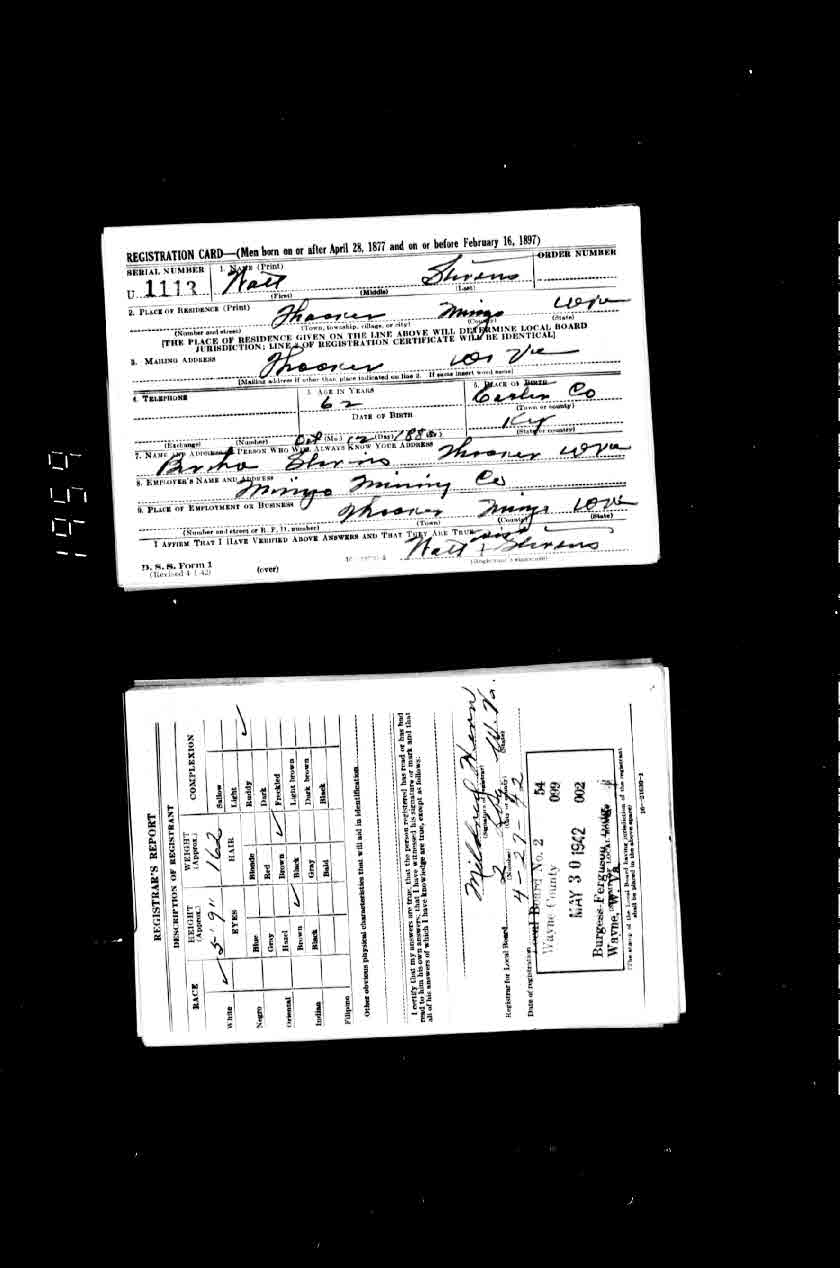 REGISTRATION CARD—(Men born on or after April 28, 1877 and on or before February 16, 1897)
SERIAL NUMBER 1. NAME (Print) ORDER NUMBER
U 1113 Watt Stevens
(First) (Middle) (Last)
2. PLACE OF RESIDENCE (Print)
Thacker Mingo W Va
(Number and street) (Town, township, village, or city) (County) (State)
[THE PLACE OF RESIDENCE GIVEN ON THE LINE ABOVE WILL DETERMINE LOCAL BOARD
JURISDICTION; LINE 2 OF REGISTRATION CERTIFICATE WILL BE IDENTICAL]
3. MAILING ADDRESS
Thacker W Va
[Mailing address if other than place indicated on line 2. If same insert word same]
4. TELEPHONE 5. AGE IN YEARS 6. PLACE OF BIRTH
62 Co
(Town or county)
DATE OF BIRTH
Ky
(Exchange) (Number) Oct (Mo.) 12 (Day) (Yr.) (State or country)
7. NAME AND ADDRESS OF PERSON WHO WILL ALWAYS KNOW YOUR ADDRESS
Stevens Thacker W Va
8. EMPLOYER'S NAME AND ADDRESS
Mingo Mining Co
9. PLACE OF EMPLOYMENT OR BUSINESS
Thacker Mingo W Va
(Number and street or R. F. D. number) (Town) (County) (State)
I AFFIRM THAT I HAVE VERIFIED ABOVE ANSWERS AND THAT THEY ARE TRUE.
Watt x Stevens
D. S. S. Form 1
(Revised 4-1-42) (over) (Registrant's signature)
1959
REGISTRAR'S REPORT
DESCRIPTION OF REGISTRANT
RACE HEIGHT (Approx.) WEIGHT (Approx.) COMPLEXION
5' 9" 162
White ✓ EYES HAIR Sallow
Light
Negro Blue Blonde Ruddy ✓
Gray Red Dark
Oriental Hazel Brown ✓ Freckled
Brown ✓ Black Light brown
Indian Black Gray Dark brown
Bald Black
Filipino
Other obvious physical characteristics that will aid in identification
I certify that my answers are true; that the person registered has read or has had
read to him his own answers; that I have witnessed his signature or mark and that
all of his answers of which I have knowledge are true, except as follows:
Mildred
(Signature of registrar)
Registrar for Local Board 2 W. Va.
(Number) (City or county) (State)
Date of registration 4-27-42
Local Board No. 2 54
Wayne County 099
MAY 30 1942 002
Burgess-Ferguson Bldg.
Wayne, W. Va.
(The stamp of the Local Board having jurisdiction of the registrant
shall be placed in the above space)
16—21630-1